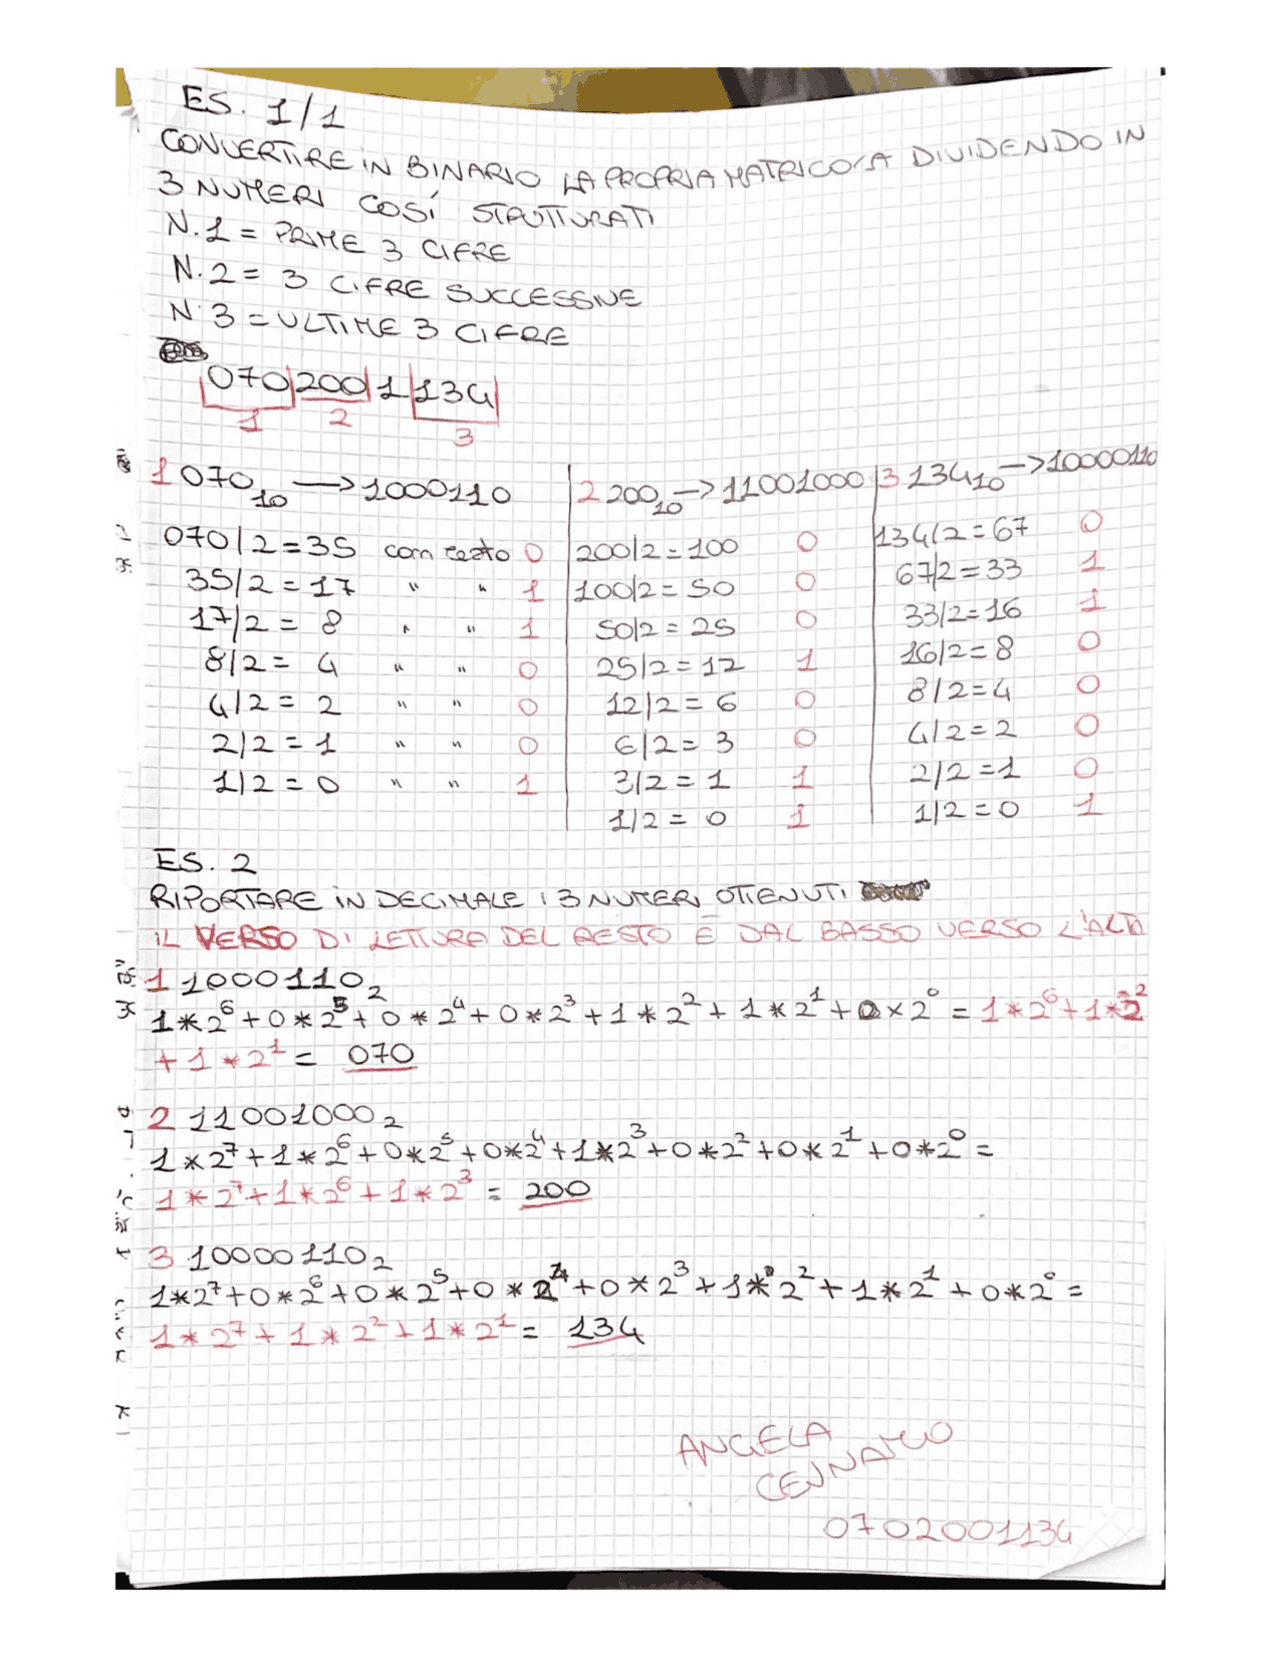 ES. 1/1
CONVERTIRE IN BINARIO LA PROPRIA MATRICOLA DIVIDENDO IN
3 NUMERI COSÍ STRUTTURATI
N.1 = PRIME 3 CIFRE
N.2 = 3 CIFRE SUCCESSIVE
N.3 = ULTIME 3 CIFRE
070 200 1 134
1 2 3
1 070₁₀ → 1000110
070/2 = 35 con resto 0
35/2 = 17 " " 1
17/2 = 8 " " 1
8/2 = 4 " " 0
4/2 = 2 " " 0
2/2 = 1 " " 0
1/2 = 0 " " 1
2 200₁₀ → 11001000
200/2 = 100 0
100/2 = 50 0
50/2 = 25 0
25/2 = 12 1
12/2 = 6 0
6/2 = 3 0
3/2 = 1 1
1/2 = 0 1
3 134₁₀ → 10000110
134/2 = 67 0
67/2 = 33 1
33/2 = 16 1
16/2 = 8 0
8/2 = 4 0
4/2 = 2 0
2/2 = 1 0
1/2 = 0 1
ES. 2
RIPORTARE IN DECIMALE I 3 NUMERI OTTENUTI
IL VERSO DI LETTURA DEL RESTO È DAL BASSO VERSO L'ALTO
1 1000110₂
1*2⁶+0*2⁵+0*2⁴+0*2³+1*2²+1*2¹+0×2⁰ = 1*2⁶+1*2²
+1*2¹ = 070
2 11001000₂
1*2⁷+1*2⁶+0*2⁵+0*2⁴+1*2³+0*2²+0*2¹+0*2⁰ =
1*2⁷+1*2⁶+1*2³ = 200
3 10000110₂
1*2⁷+0*2⁶+0*2⁵+0*2⁴+0*2³+1*2²+1*2¹+0*2⁰ =
1*2⁷+1*2²+1*2¹ = 134
ANGELA
CENNAMO
0702001134